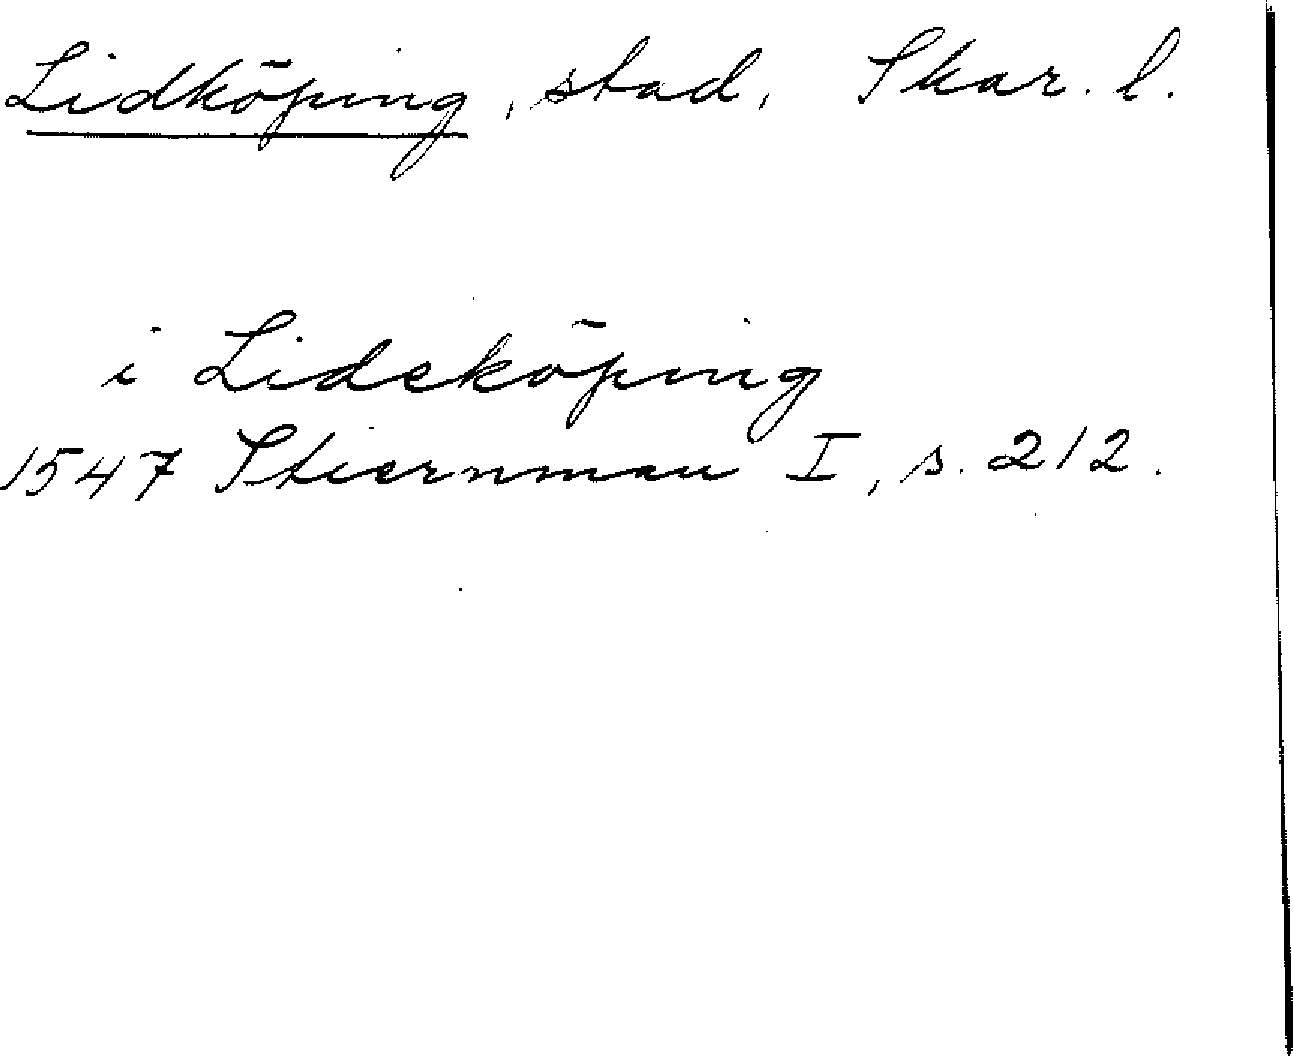 Lidköping, stad, Skar. l.
i Lideköping
1547 Stiernman I, s. 212.